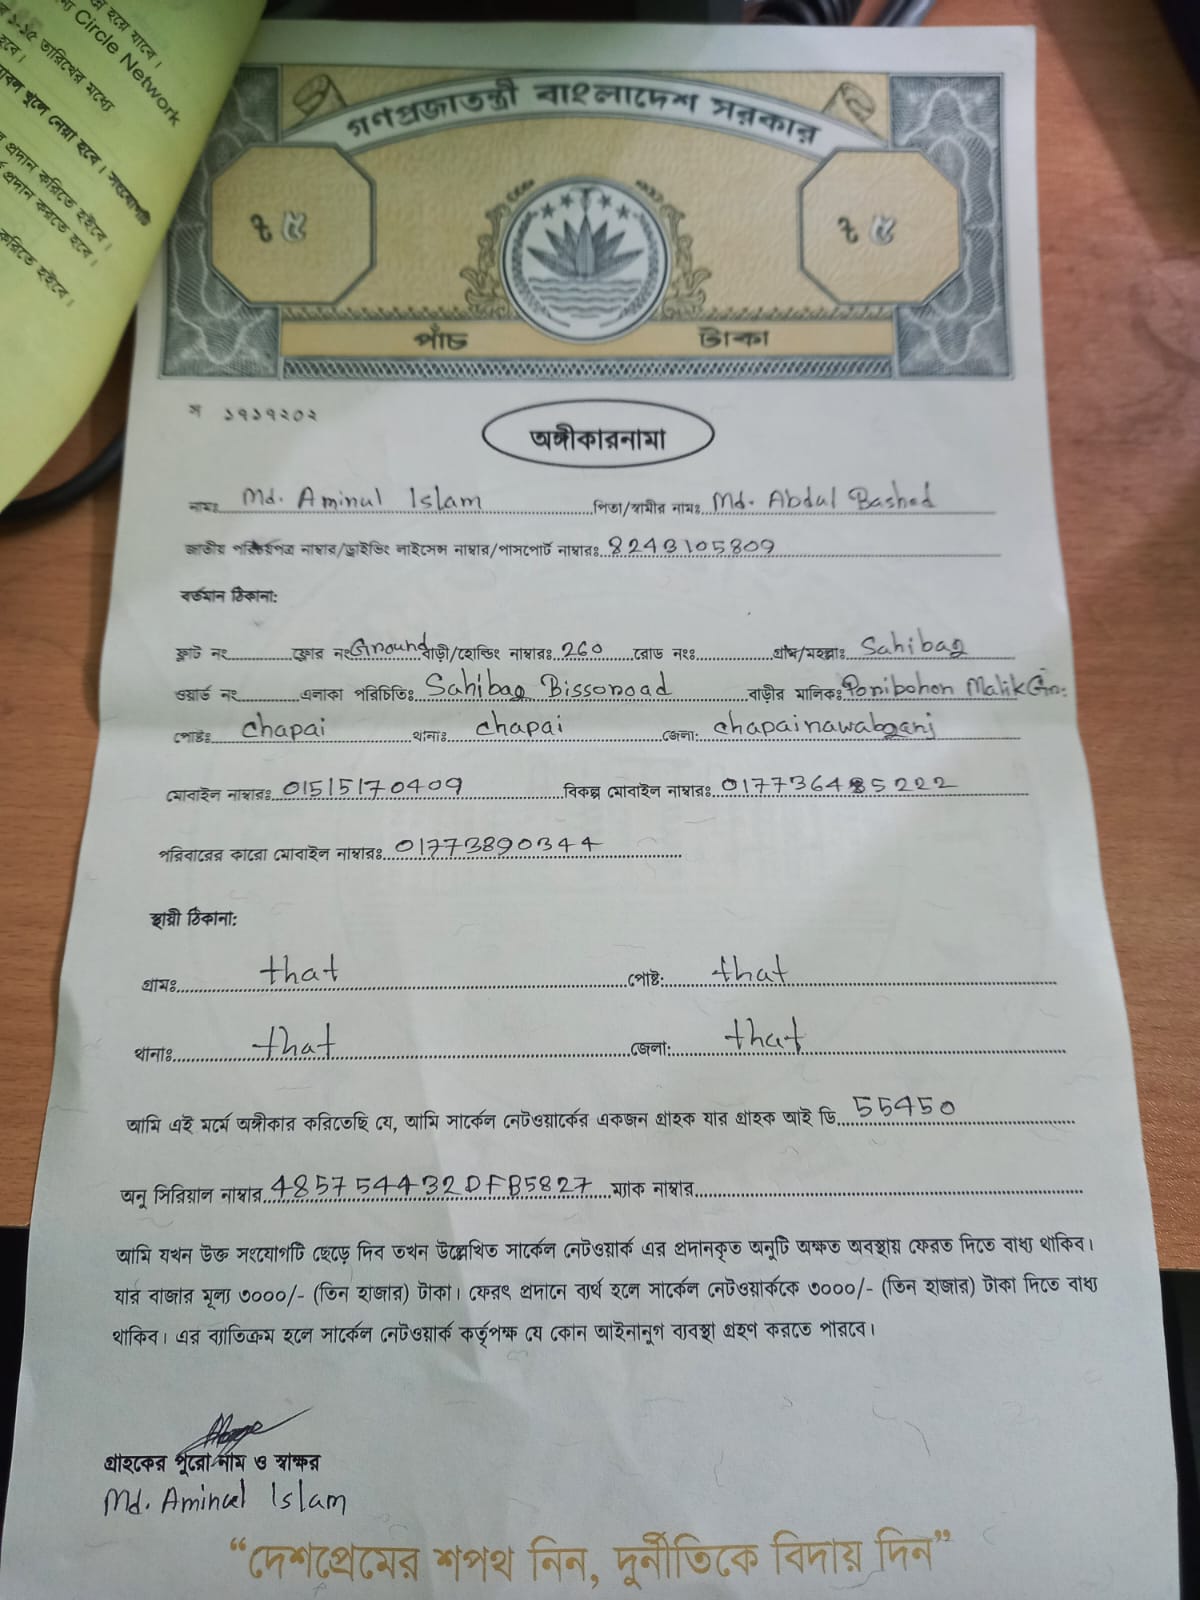 হয়ে যাবে।
Circle Network
১-১৫ তারিখের মধ্যে
হবে।
খুলে নেয়া হবে। সংযোগটি
প্রদান করিতে হইবে।
প্রদান করতে হবে।
করিতে হইবে।
গণপ্রজাতন্ত্রী বাংলাদেশ সরকার
৳ ৫ ৳ ৫
পাঁচ টাকা
স ১৭১৭২০২
অঙ্গীকারনামা
নামঃ Md. Aminul Islam পিতা/স্বামীর নামঃ Md. Abdul Bashed
জাতীয় পরিচয়পত্র নাম্বার/ড্রাইভিং লাইসেন্স নাম্বার/পাসপোর্ট নাম্বারঃ 8243105809
বর্তমান ঠিকানা:
ফ্লাট নং ফ্লোর নং Ground বাড়ী/হোল্ডিং নাম্বারঃ 260 রোড নংঃ গ্রাম/মহল্লাঃ Sahibag
ওয়ার্ড নং এলাকা পরিচিতিঃ Sahibag Bissoroad বাড়ীর মালিকঃ Poribohon Malik Gr:
পোষ্টঃ chapai থানাঃ chapai জেলা: chapainawabganj
মোবাইল নাম্বারঃ 01515170409 বিকল্প মোবাইল নাম্বারঃ
পরিবারের কারো মোবাইল নাম্বারঃ 01773890344
স্থায়ী ঠিকানা:
গ্রামঃ that পোষ্ট: that
থানাঃ that জেলা: that
আমি এই মর্মে অঙ্গীকার করিতেছি যে, আমি সার্কেল নেটওয়ার্কের একজন গ্রাহক যার গ্রাহক আই ডি 55450
অনু সিরিয়াল নাম্বার 485754432DFB5827 ম্যাক নাম্বার
আমি যখন উক্ত সংযোগটি ছেড়ে দিব তখন উল্লেখিত সার্কেল নেটওয়ার্ক এর প্রদানকৃত অনুটি অক্ষত অবস্থায় ফেরত দিতে বাধ্য থাকিব।
যার বাজার মূল্য ৩০০০/- (তিন হাজার) টাকা। ফেরৎ প্রদানে ব্যর্থ হলে সার্কেল নেটওয়ার্ককে ৩০০০/- (তিন হাজার) টাকা দিতে বাধ্য
থাকিব। এর ব্যতিক্রম হলে সার্কেল নেটওয়ার্ক কর্তৃপক্ষ যে কোন আইনানুগ ব্যবস্থা গ্রহণ করতে পারবে।
গ্রাহকের পুরো নাম ও স্বাক্ষর
Md. Aminul Islam
“দেশপ্রেমের শপথ নিন, দুর্নীতিকে বিদায় দিন”